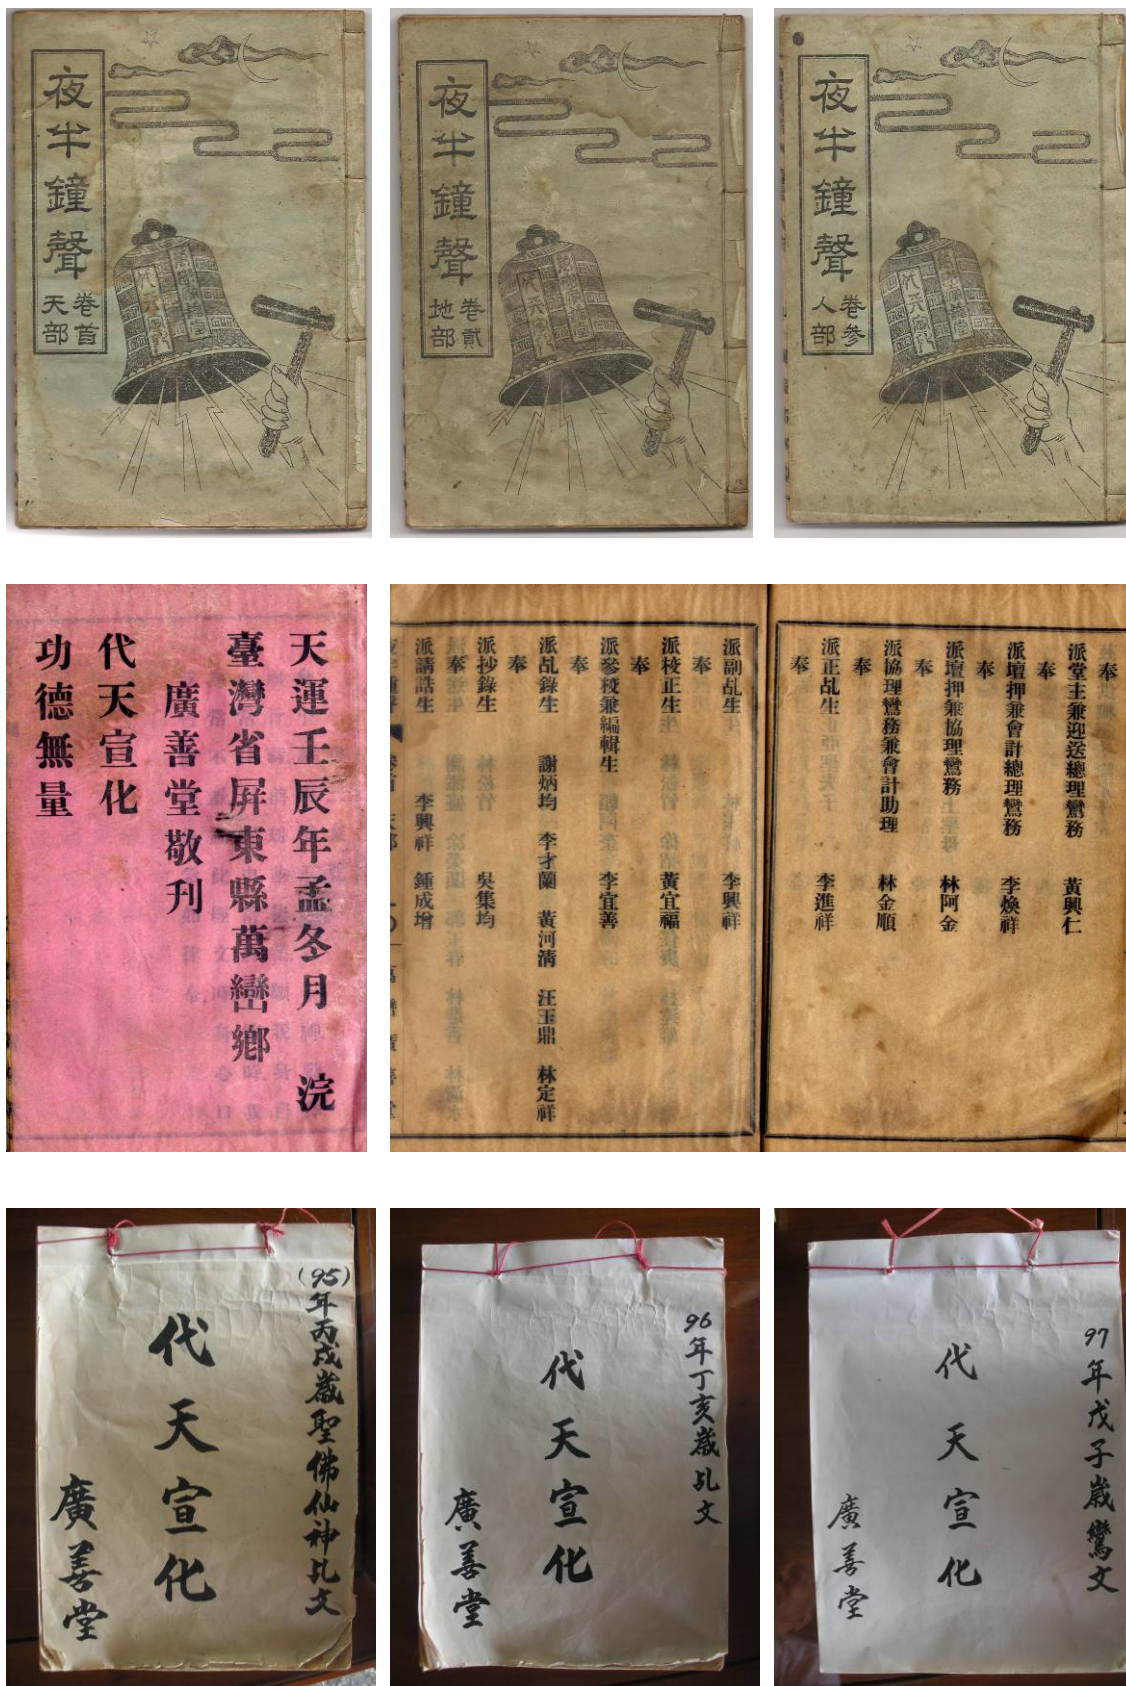 夜半鐘聲
卷首
天部
代天宣化
夜半鐘聲
卷貳
地部
代天宣化
夜半鐘聲
卷參
人部
代天宣化
天運壬辰年孟冬月 浣
臺灣省屏東縣萬巒鄉
廣善堂敬刊
代天宣化
功德無量
奉
派堂主兼迎送總理鸞務 黃興仁
奉
派壇押兼會計總理鸞務 李煥祥
奉
派壇押兼協理鸞務 林阿金
奉
派協理鸞務兼會計助理 林金順
奉
派正乩生 李進祥
奉
派副乩生 李興祥
奉
派校正生 黃宜福
奉
派參校兼編輯生 李宜善
奉
派乩錄生 謝炳均 李才蘭 黃河清 汪玉鼎 林定祥
奉
派抄錄生 吳集均
奉
派請誥生 李興祥 鍾成增
(95)年丙戌歲聖佛仙神乩文
代天宣化
廣善堂
96年丁亥歲乩文
代天宣化
廣善堂
97年戊子歲鸞文
代天宣化
廣善堂